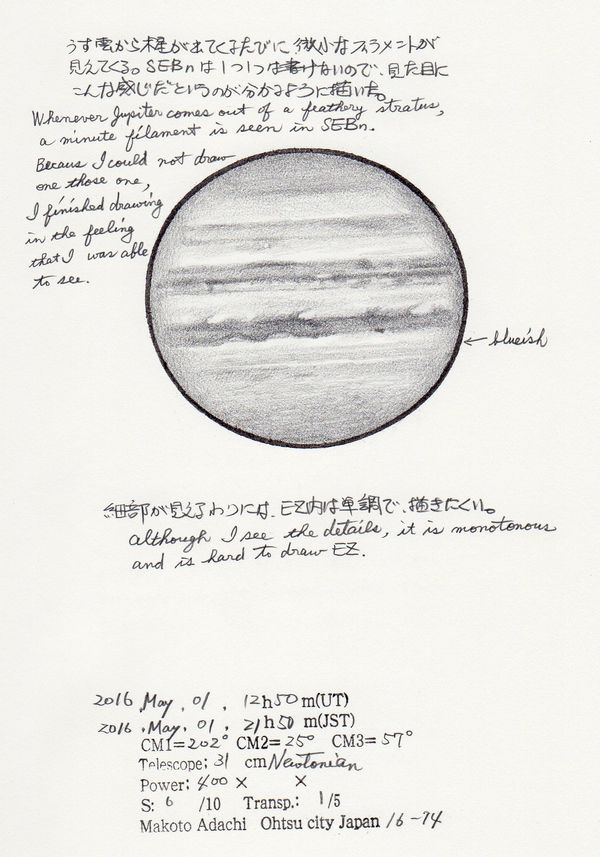 うす雲から木星が出てくるたびに、微小なフィラメントが
見えてくる。SEBnは1つ1つは書けないので、見た目に
こんな感じだというのが分かるように描いた。
Whenever Jupiter comes out of a feathery stratus,
a minute filament is seen in SEBn.
Becaus I could not draw
one those one,
I finished drawing
in the feeling
that I was able
to see.
← blueish
細部が見えるわりには、EZ内は単調で、描きにくい。
although I see the details, it is monotonous
and is hard to draw EZ.
2016, May. 01, 12h50m(UT)
2016, May. 01, 21h50m(JST)
CM1=202° CM2=25° CM3=57°
Telescope: 31 cm Newtonian
Power: 400× ×
S: 6 /10 Transp.: 1/5
Makoto Adachi Ohtsu city Japan 16-74